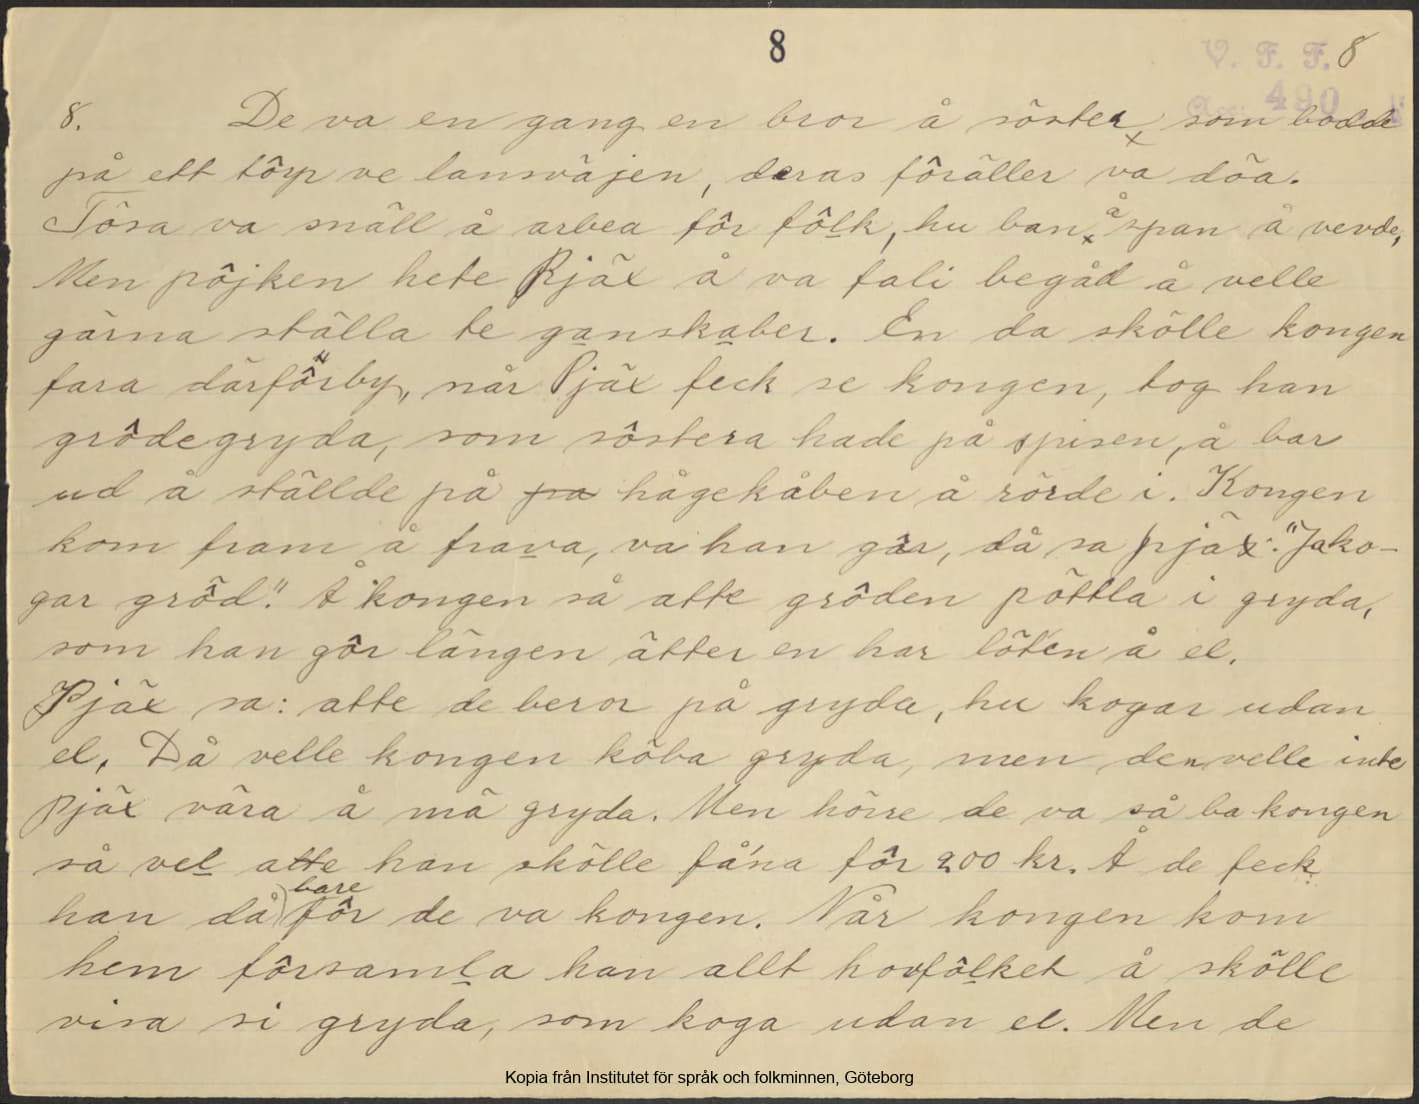 8
V. F. F. 8
Acc: 490
8. De va en gang en bror å söster, som bodde
på ett tôrp ve lansväjen, deras fôräller va döa.
Tösa va snäll å arbea fôr fôlk, hu ban å span å vevde,
Men pôjken hete Pjäx å va fali begåd å velle
gärna ställa te ganskaber. En da skölle kongen
fara därfôrby, når Pjäx feck se kongen, tog han
grôdegryda, som söstera hade på spisen, å bar
ud å ställde på pa hågekåben å rörde i. Kongen
kom fram å frava, va han gôr, då sa Pjäx: "Jako-
gar grôd." Å kongen så atte grôden pôttla i gryda,
som han gôr längen ätter en har löten å el.
Pjäx sa: atte de beror på gryda, hu kogar udan
el. Då velle kongen köba gryda, men den velle inte
Pjäx våra å mä gryda. Men hörre de va så ba kongen
så vel atte han skölle få'na fôr 200 kr. Å de feck
han då) bare fôr de va kongen. Når kongen kom
hem fôrsamla han allt hovfôlket å skölle
visa si gryda, som koga udan el. Men de
Kopia från Institutet för språk och folkminnen, Göteborg